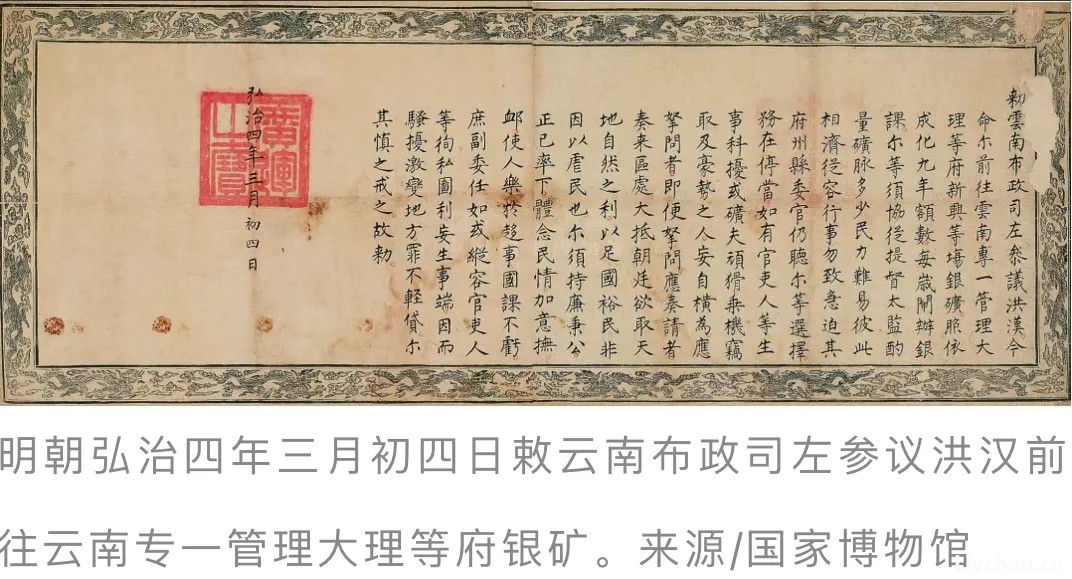 勑雲南布政司左叅議洪漢今
命尓前往雲南專一管理大
理等府新興等塲銀礦照依
成化九年額數每歲閘辦銀
課尓等須協從提督太監酌
量礦脉多少民力難易彼此
相濟從容行事勿致急迫其
府州縣委官仍聽尓等選擇
務在停當如有官吏人等生
事科擾或礦夫頑猾乘機竊
取及豪勢之人妄自橫為應
拏問者即便拏問應奏請者
奏來區處大抵朝廷欲取天
地自然之利以足國裕民非
因以虐民也尓須持廉秉公
正己率下體念民情加意撫
卹使人樂於趍事國課不虧
庶副委任如或縱容官吏人
等徇私圖利妄生事端因而
騷擾激變地方罪不輕貸尓
其慎之戒之故勑
弘治四年三月初四日
廣運
之寶
明朝弘治四年三月初四日敕云南布政司左参议洪汉前
往云南专一管理大理等府银矿。来源/国家博物馆